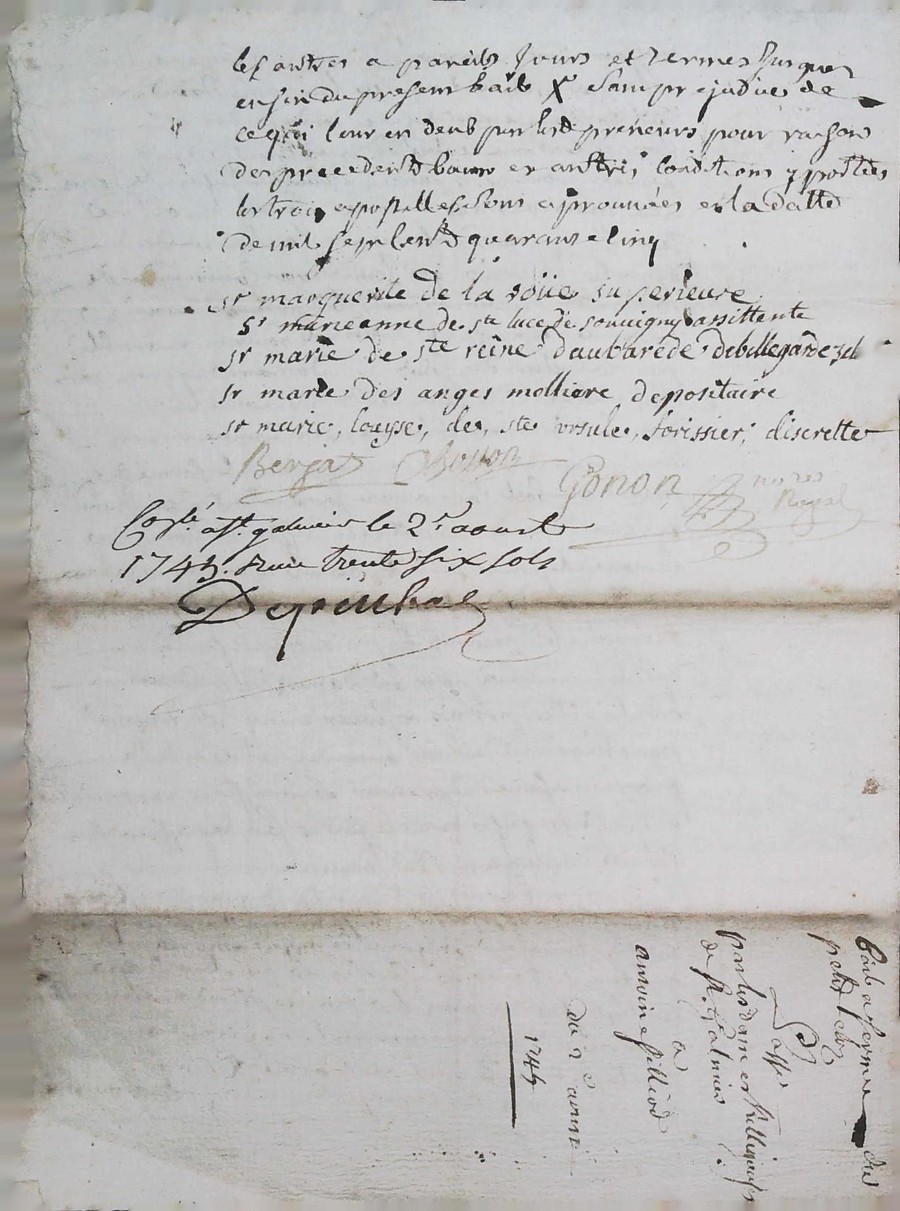 les autres a pareils Jours et termes Jusques
en fin du present bail X sans prejudice de
ce qui leur en deub par lesd preneurs pour raison
des precedents baux et autres conditions y portées
les trois apostilles sont aprouvées et la datte
de mil sept cent quarante cinq
sr marguerite de la roüe superieure
sr marieanne de ste luce de souvigny assistente
sr marie de ste reine daubarede debellegarde zel
sr marie des anges molliere depositaire
sr marie, louyse, de, ste ursule, forissier, discrette
Berjat Gonon
nores
Royal
Conlé a st galmier le 2e aoust
1745. Reçu trente six sols
Depinhac
bail a ferme du
petit
passé
par les dames Religieuses
de St. Galmier
a
antoine
du 2e aoust
1745